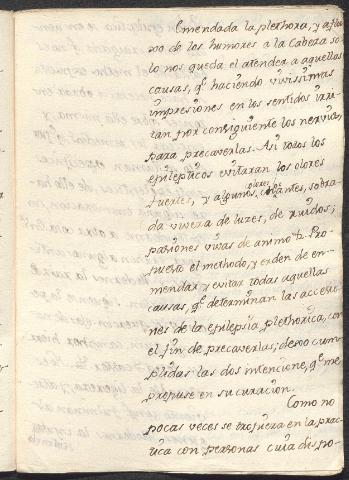 Emendada la plethora, y aflu
xo de los humores a la Cabeza so
lo nos queda el atender a aquellas
causas, qe. haciendo vivissimas
impresiones en los sentidos irri-
tan por consiguiente los nervios,
para precaverlas. Asi todos los
epilepticos evitaran los olores
fuertes, y algunos colores, sobra-
da viveza de luzes, de ruidos;
pasiones vivas de animo &. Pro-
suelto el methodo, y orden de en-
mendar, y evitar todas aquellas
causas, qe. determinan las accesio-
nes de la epilepsia plethorica, con
el fin de precaverlas; devo cum-
plidas las dos intencione, qe. me
prepuse en su curacion.
Como no
pocas veces se tropieza en la prac
tica con personas cuia dispo-